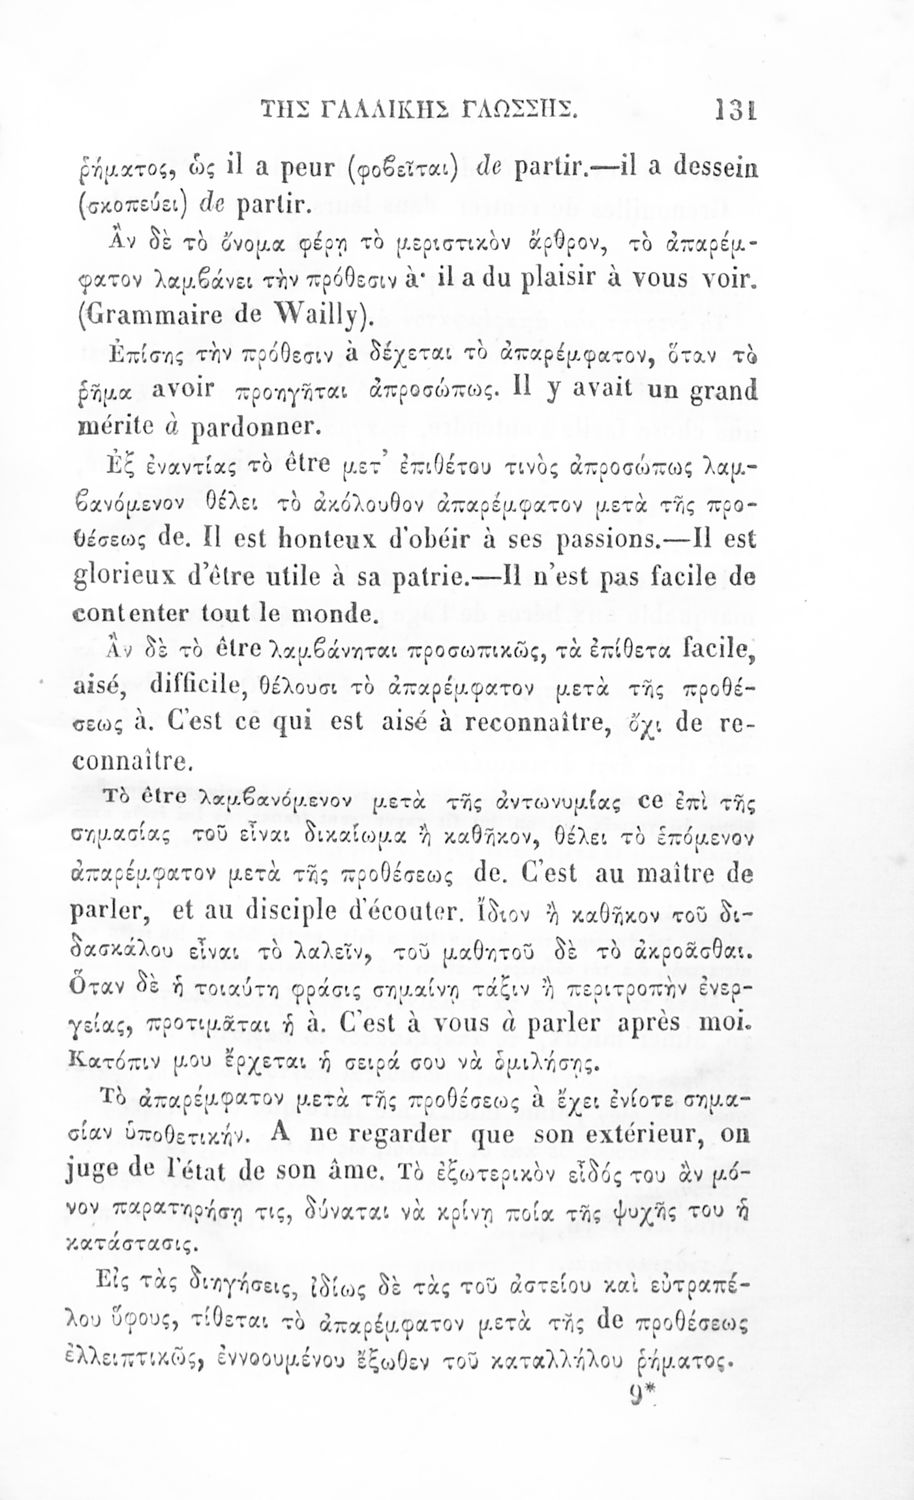 ΤΗΣ ΓΑΛΛΙΚΗΣ ΓΛΩΣΣΗΣ. 131
ῥήματος, ὡς il a peur (φοβεῖται) de partir.—il a dessein
(σκοπεύει) de partir.
Ἂν δὲ τὸ ὄνομα φέρῃ τὸ μεριστικὸν ἄρθρον, τὸ ἀπαρέμ-
φατον λαμβάνει τὴν πρόθεσιν à· il a du plaisir à vous voir.
(Grammaire de Wailly).
Ἐπίσης τὴν πρόθεσιν à δέχεται τὸ ἀπαρέμφατον, ὅταν τὸ
ῥῆμα avoir προηγῆται ἀπροσώπως. Il y avait un grand
mérite à pardonner.
Ἐξ ἐναντίας τὸ être μετ’ ἐπιθέτου τινὸς ἀπροσώπως λαμ-
βανόμενον θέλει τὸ ἀκόλουθον ἀπαρέμφατον μετὰ τῆς προ-
θέσεως de. Il est honteux d'obéir à ses passions.—Il est
glorieux d’être utile à sa patrie.—Il n’est pas facile de
contenter tout le monde.
Ἂν δὲ τὸ être λαμβάνηται προσωπικῶς, τὰ ἐπίθετα facile,
aisé, difficile, θέλουσι τὸ ἀπαρέμφατον μετὰ τῆς προθέ-
σεως à. C'est ce qui est aisé à reconnaître, ὄχι de re-
connaître.
Τὸ être λαμβανόμενον μετὰ τῆς ἀντωνυμίας ce ἐπὶ τῆς
σημασίας τοῦ εἶναι δικαίωμα ἢ καθῆκον, θέλει τὸ ἑπόμενον
ἀπαρέμφατον μετὰ τῆς προθέσεως de. C'est au maître de
parler, et au disciple d'écouter. Ἴδιον ἢ καθῆκον τοῦ δι-
δασκάλου εἶναι τὸ λαλεῖν, τοῦ μαθητοῦ δὲ τὸ ἀκροᾶσθαι.
Ὅταν δὲ ἡ τοιαύτη φράσις σημαίνῃ τάξιν ἢ περιτροπὴν ἐνερ-
γείας, προτιμᾶται ἡ à. C'est à vous à parler après moi.
Κατόπιν μου ἔρχεται ἡ σειρά σου νὰ ὁμιλήσῃς.
Τὸ ἀπαρέμφατον μετὰ τῆς προθέσεως à ἔχει ἐνίοτε σημα-
σίαν ὑποθετικήν. A ne regarder que son extérieur, on
juge de l'état de son âme. Τὸ ἐξωτερικὸν εἶδός του ἂν μό-
νον παρατηρήσῃ τις, δύναται νὰ κρίνῃ ποία τῆς ψυχῆς του ἡ
κατάστασις.
Εἰς τὰς διηγήσεις, ἰδίως δὲ τὰς τοῦ ἀστείου καὶ εὐτραπέ-
λου ὕφους, τίθεται τὸ ἀπαρέμφατον μετὰ τῆς de προθέσεως
ἐλλειπτικῶς, ἐννοουμένου ἔξωθεν τοῦ καταλλήλου ῥήματος.
9*